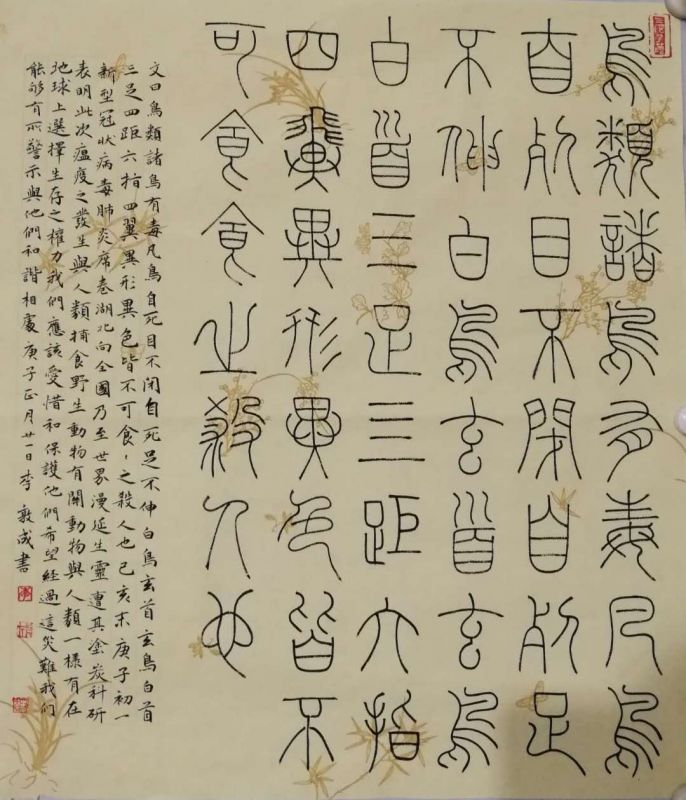 鳥類諸鳥有毒凡鳥
自死目不閉自死足
不伸白鳥玄首玄鳥
白首三足亖距六指
四翼異形異色皆不
可食食之殺人也
文曰鳥類諸鳥有毒凡鳥自死目不閉自死足不伸白鳥玄首玄鳥白首
三足四距六指四翼異形異色皆不可食〻之殺人也己亥末庚子初一
新型冠狀病毒肺炎席卷湖北向全國乃至世界漫延生靈遭其塗炭科研
表明此次瘟疫之發生與人類捕食野生動物有關動物與人類一樣有在
地球上選擇生存之權力我們應該愛惜和保護他們希望經過這災難我們
能夠有所警示與他們和諧相處庚子正月廿一日李敦成書